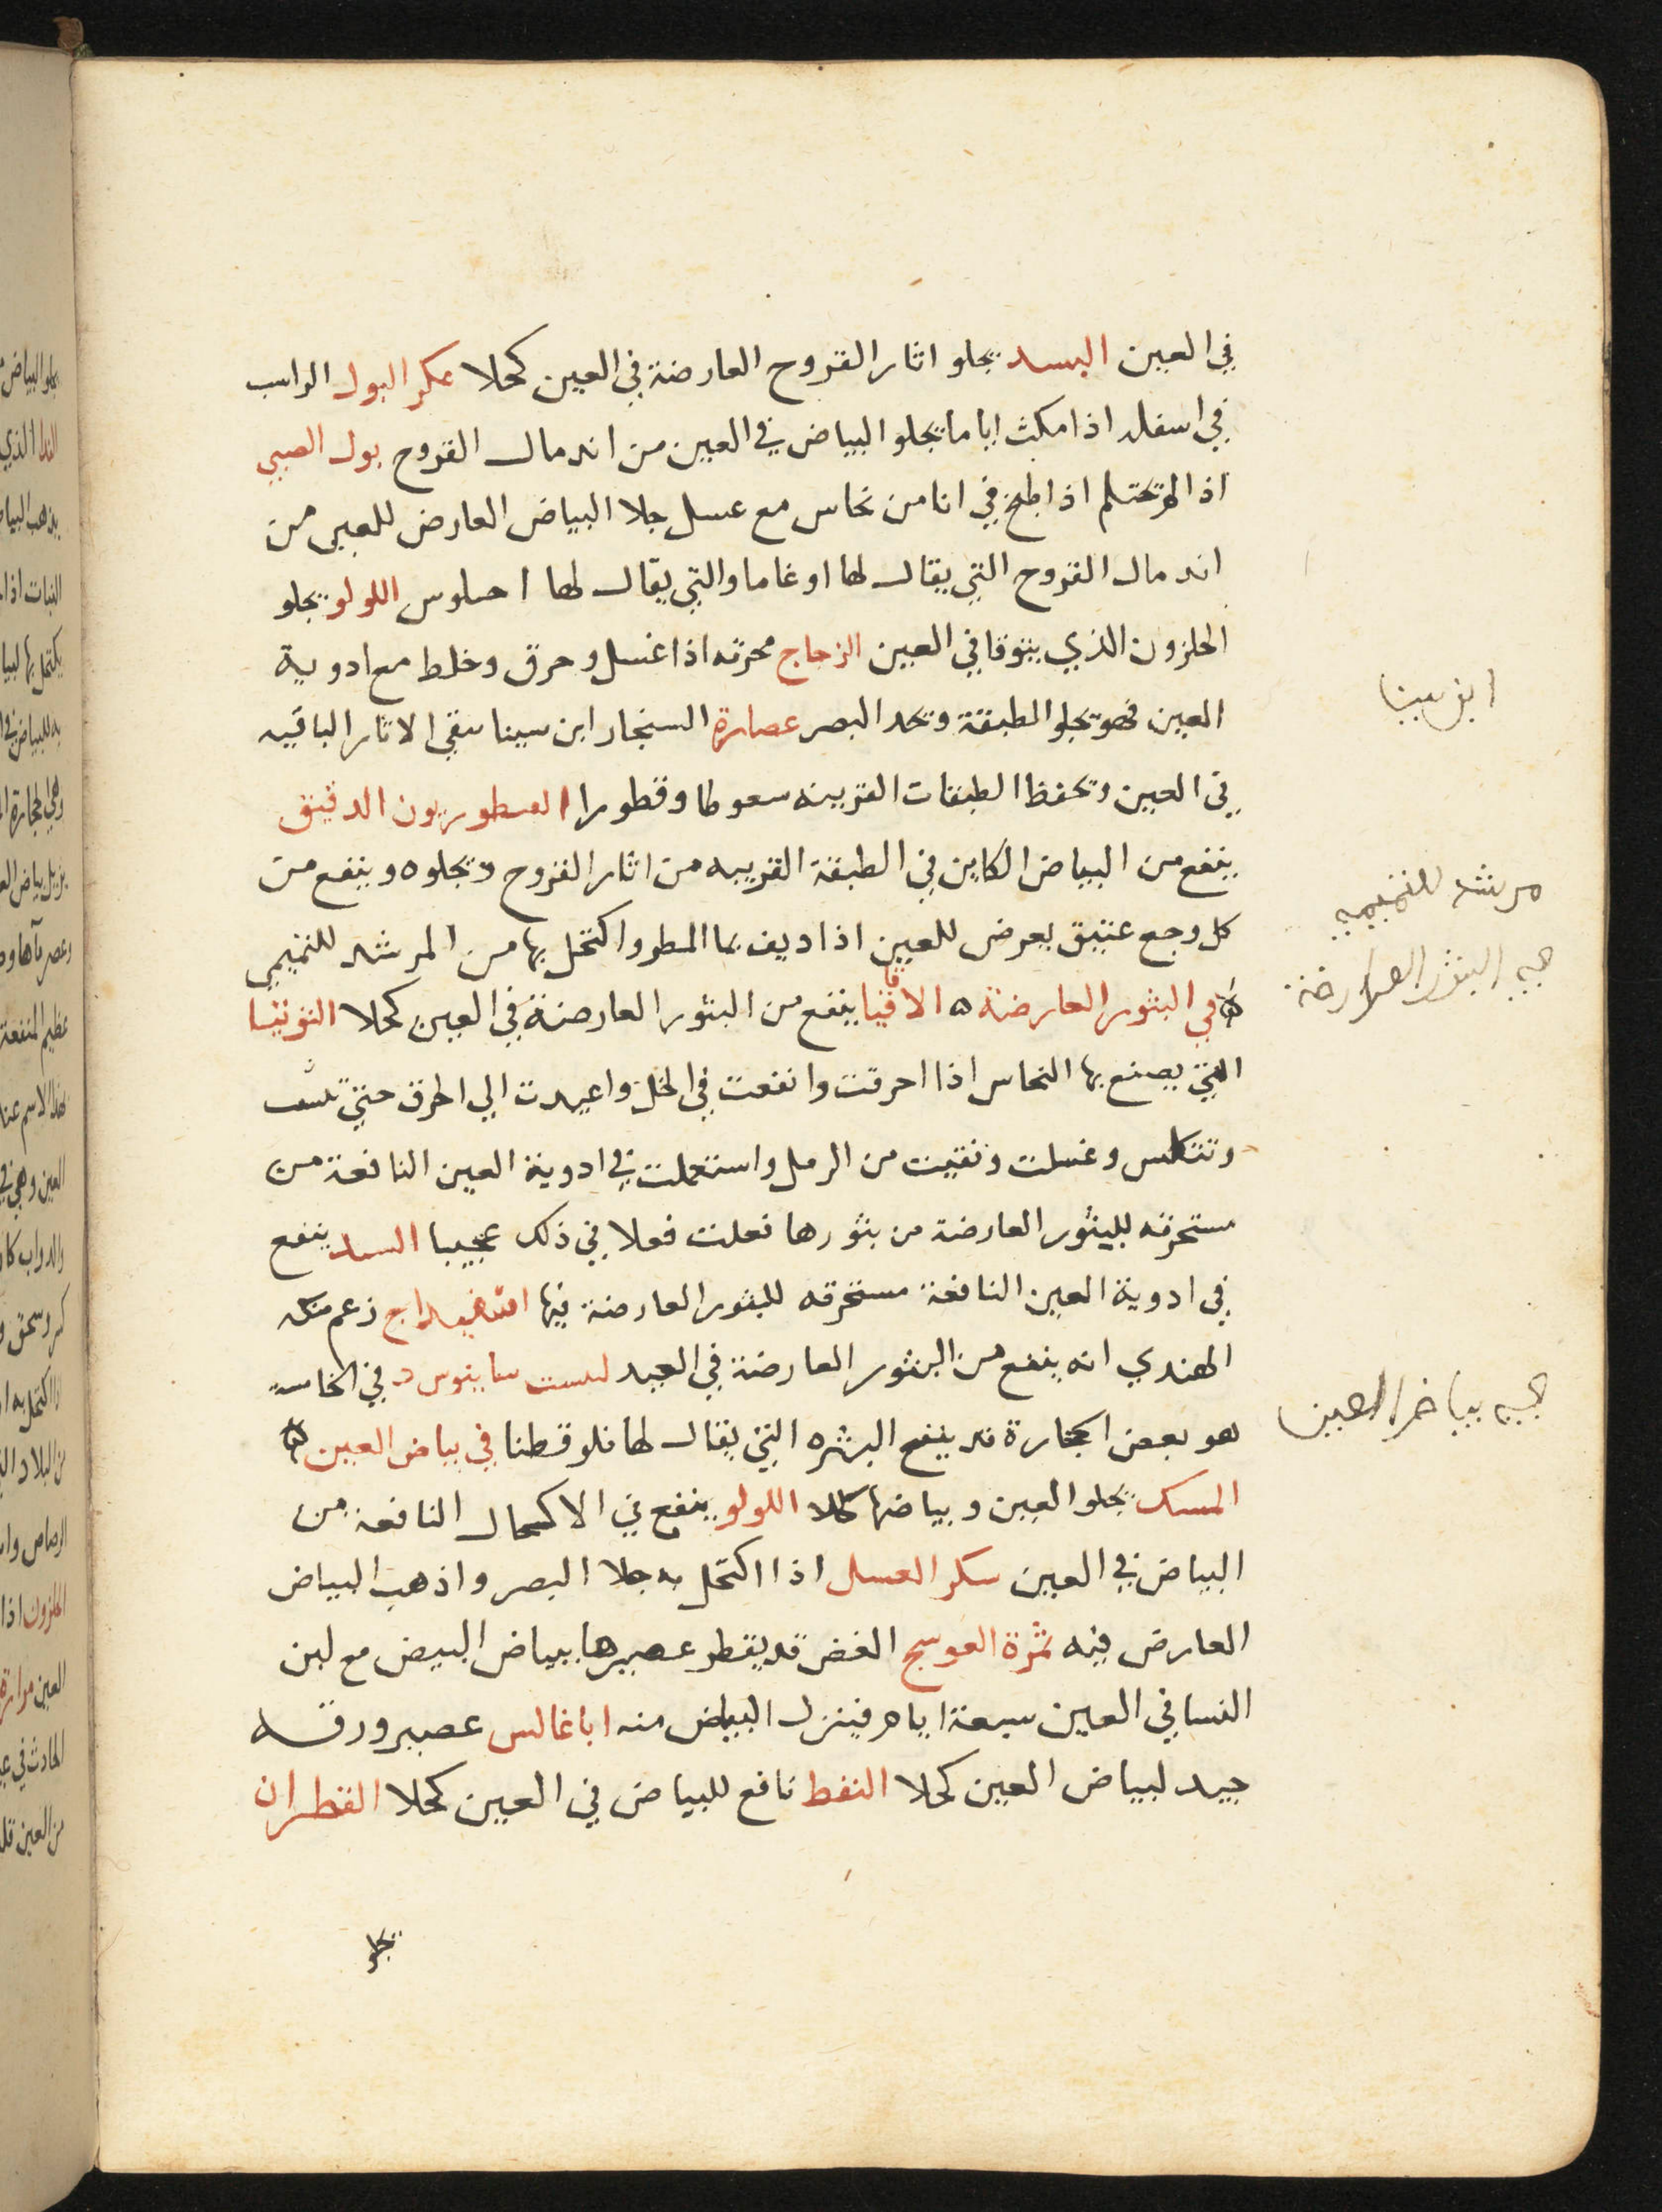 في العين البسد يجلو اثار القروح العارضة في العين كحلا عكر البول الراسب
في اسفله اذا مكث اياما يجلو البياض في العين من اندمال القروح بول الصبي
اذا لم يحتلم اذا طبخ في انا من نحاس مع عسل جلا البياض العارض للعين من
اندمال القروح التي يقال لها اوغاما والتي يقال لها احيلوس اللولو يجلو
الحلزون الذي يتوقا في العين الزجاج محرقه اذا غسل وحرق وخلط مع ادوية
العين فهو يجلو الطبقة ويحد البصر عصارة السنجار ابن سينا ينقي الاثار الباقيه
في العين ويحفظ الطبقات القرنيه سعوطا وقطورا القنطوريون الدقيق
ينفع من البياض الكاين في الطبقة القرنيه من اثار القروح ويجلوه وينفع من
كل وجع عتيق يعرض للعين اذا ديف بما المطر واكتحل بها من المرشد للتميمي
في البثور العارضة ه الاقاقيا ينفع من البثور العارضة في العين كحلا التوتيا
التي يصنع بها النحاس اذا احرقت وانقعت في الخل واعيدت الي الحرق حتي
وتتكلس وغسلت ونقيت من الرمل واستعملت في ادوية العين النافعة من
مستحرقه للبثور العارضة من بثورها فعلت فعلا في ذلك عجيبا البسد ينفع
في ادوية العين النافعة مستحرقه للبثور العارضة فيها اسفيداج زعم منكه
الهندي انه ينفع من البثور العارضة في العين في الخامسة
هو بعض الحجارة قد ينفع البثره التي يقال لها فلوقطنا في بياض العين
المسك يجلو العين وبياضها كحلا اللولو ينفع في الاكحال النافعة من
البياض في العين سكر العسل اذا اكتحل به جلا البصر واذهب البياض
العارض فيه ثمرة العوسج الغض قد يقطر عصيرها ببياض البيض مع لبن
النسا في العين سبعة ايام فينزل البياض منه اناغالس عصير ورقه
جيد لبياض العين كحلا النفط نافع للبياض في العين كحلا القطران
يجلو
ابن سينا
مرشد للتميمي
البثور العارضة
بياض العين